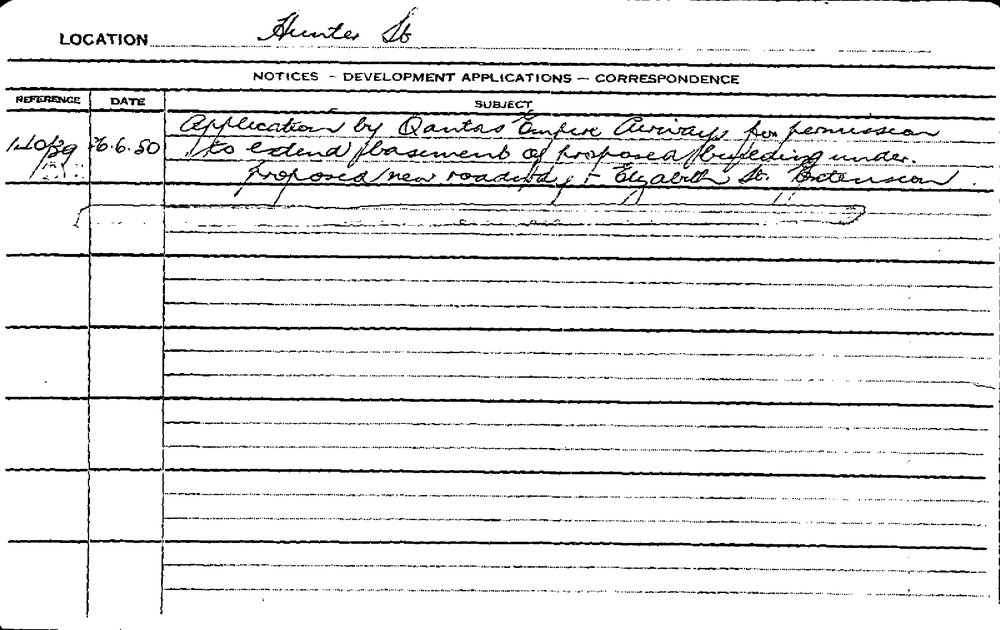 LOCATION Hunter St
NOTICES - DEVELOPMENT APPLICATIONS - CORRESPONDENCE
REFERENCE DATE SUBJECT
Application by Qantas Empire Airways for permission
6.6.50 to extend basement of proposed building under
proposed new roadway - Elizabeth St. Extension.